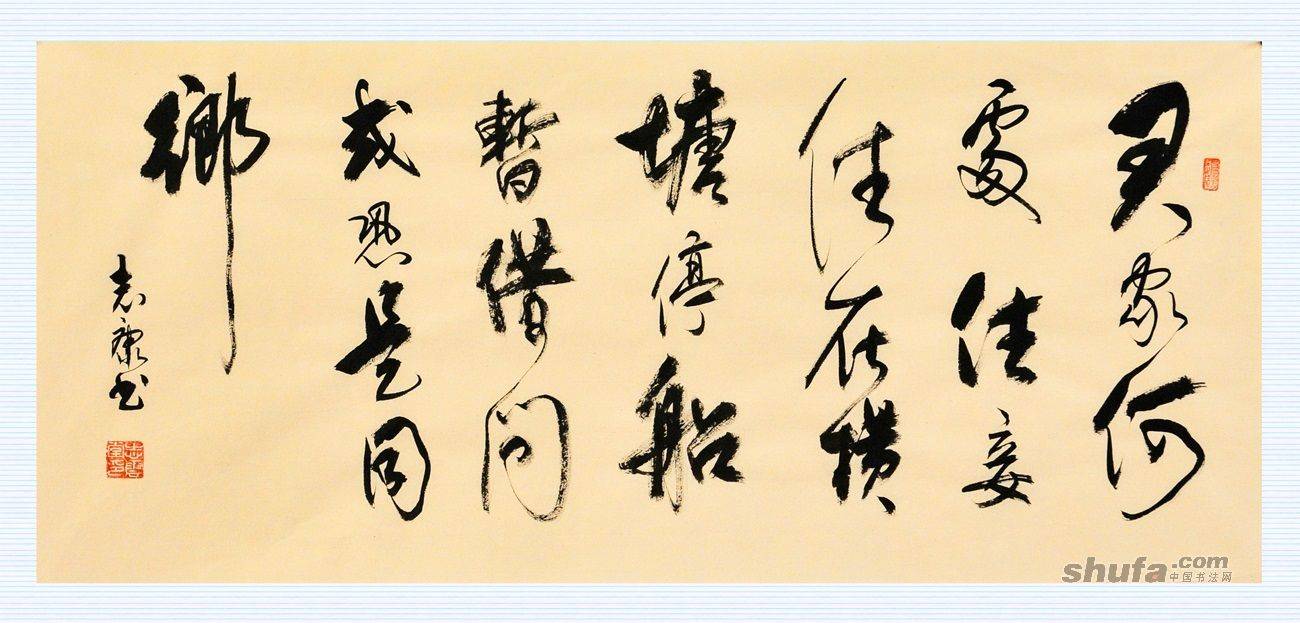 君家何
處住妾
住在横
塘停船
暫借问
或恐是同
鄉
志康书
shufa.com
中国书法网